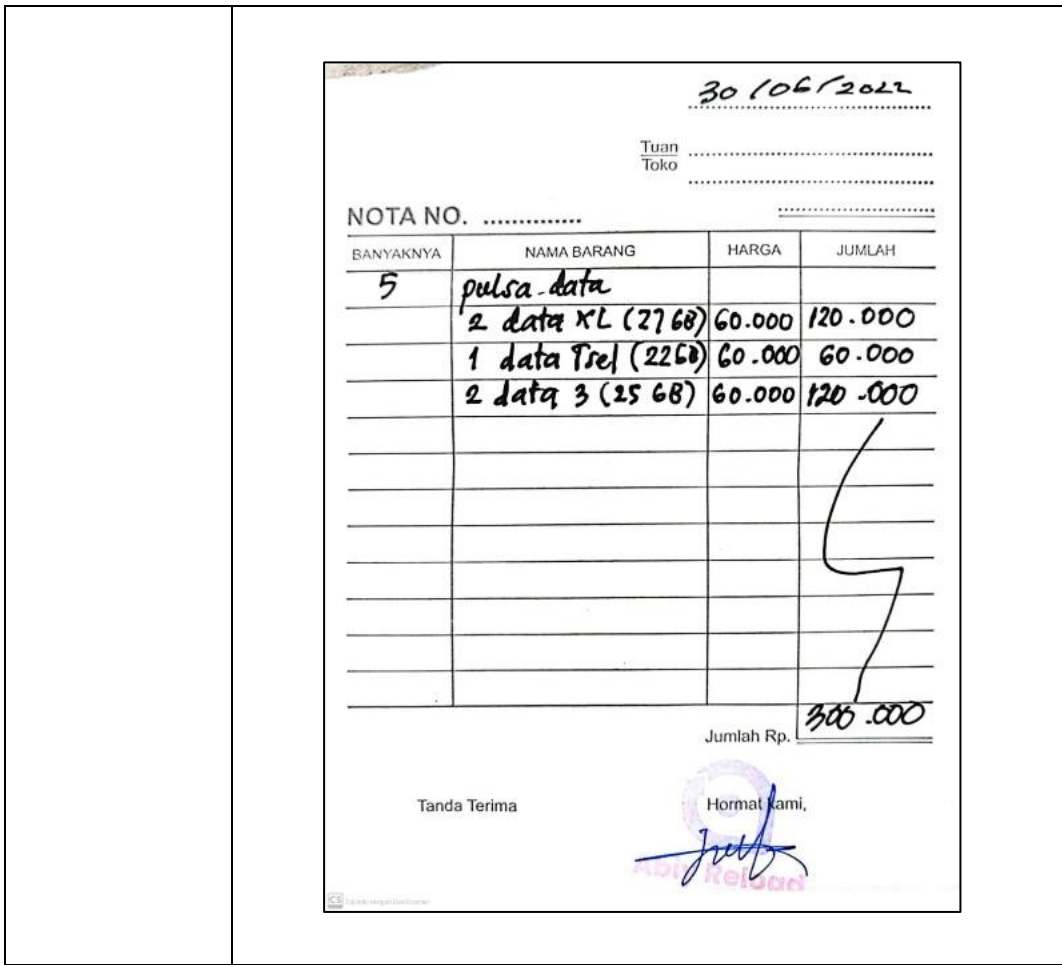 30/06/2022
Tuan
Toko
NOTA NO. ..............
BANYAKNYA NAMA BARANG HARGA JUMLAH
5 pulsa data
2 data XL (27 GB) 60.000 120.000
1 data Tsel (22GB) 60.000 60.000
2 data 3 (25 GB) 60.000 120.000
Jumlah Rp. 300.000
Tanda Terima Hormat kami,
Reload
CS